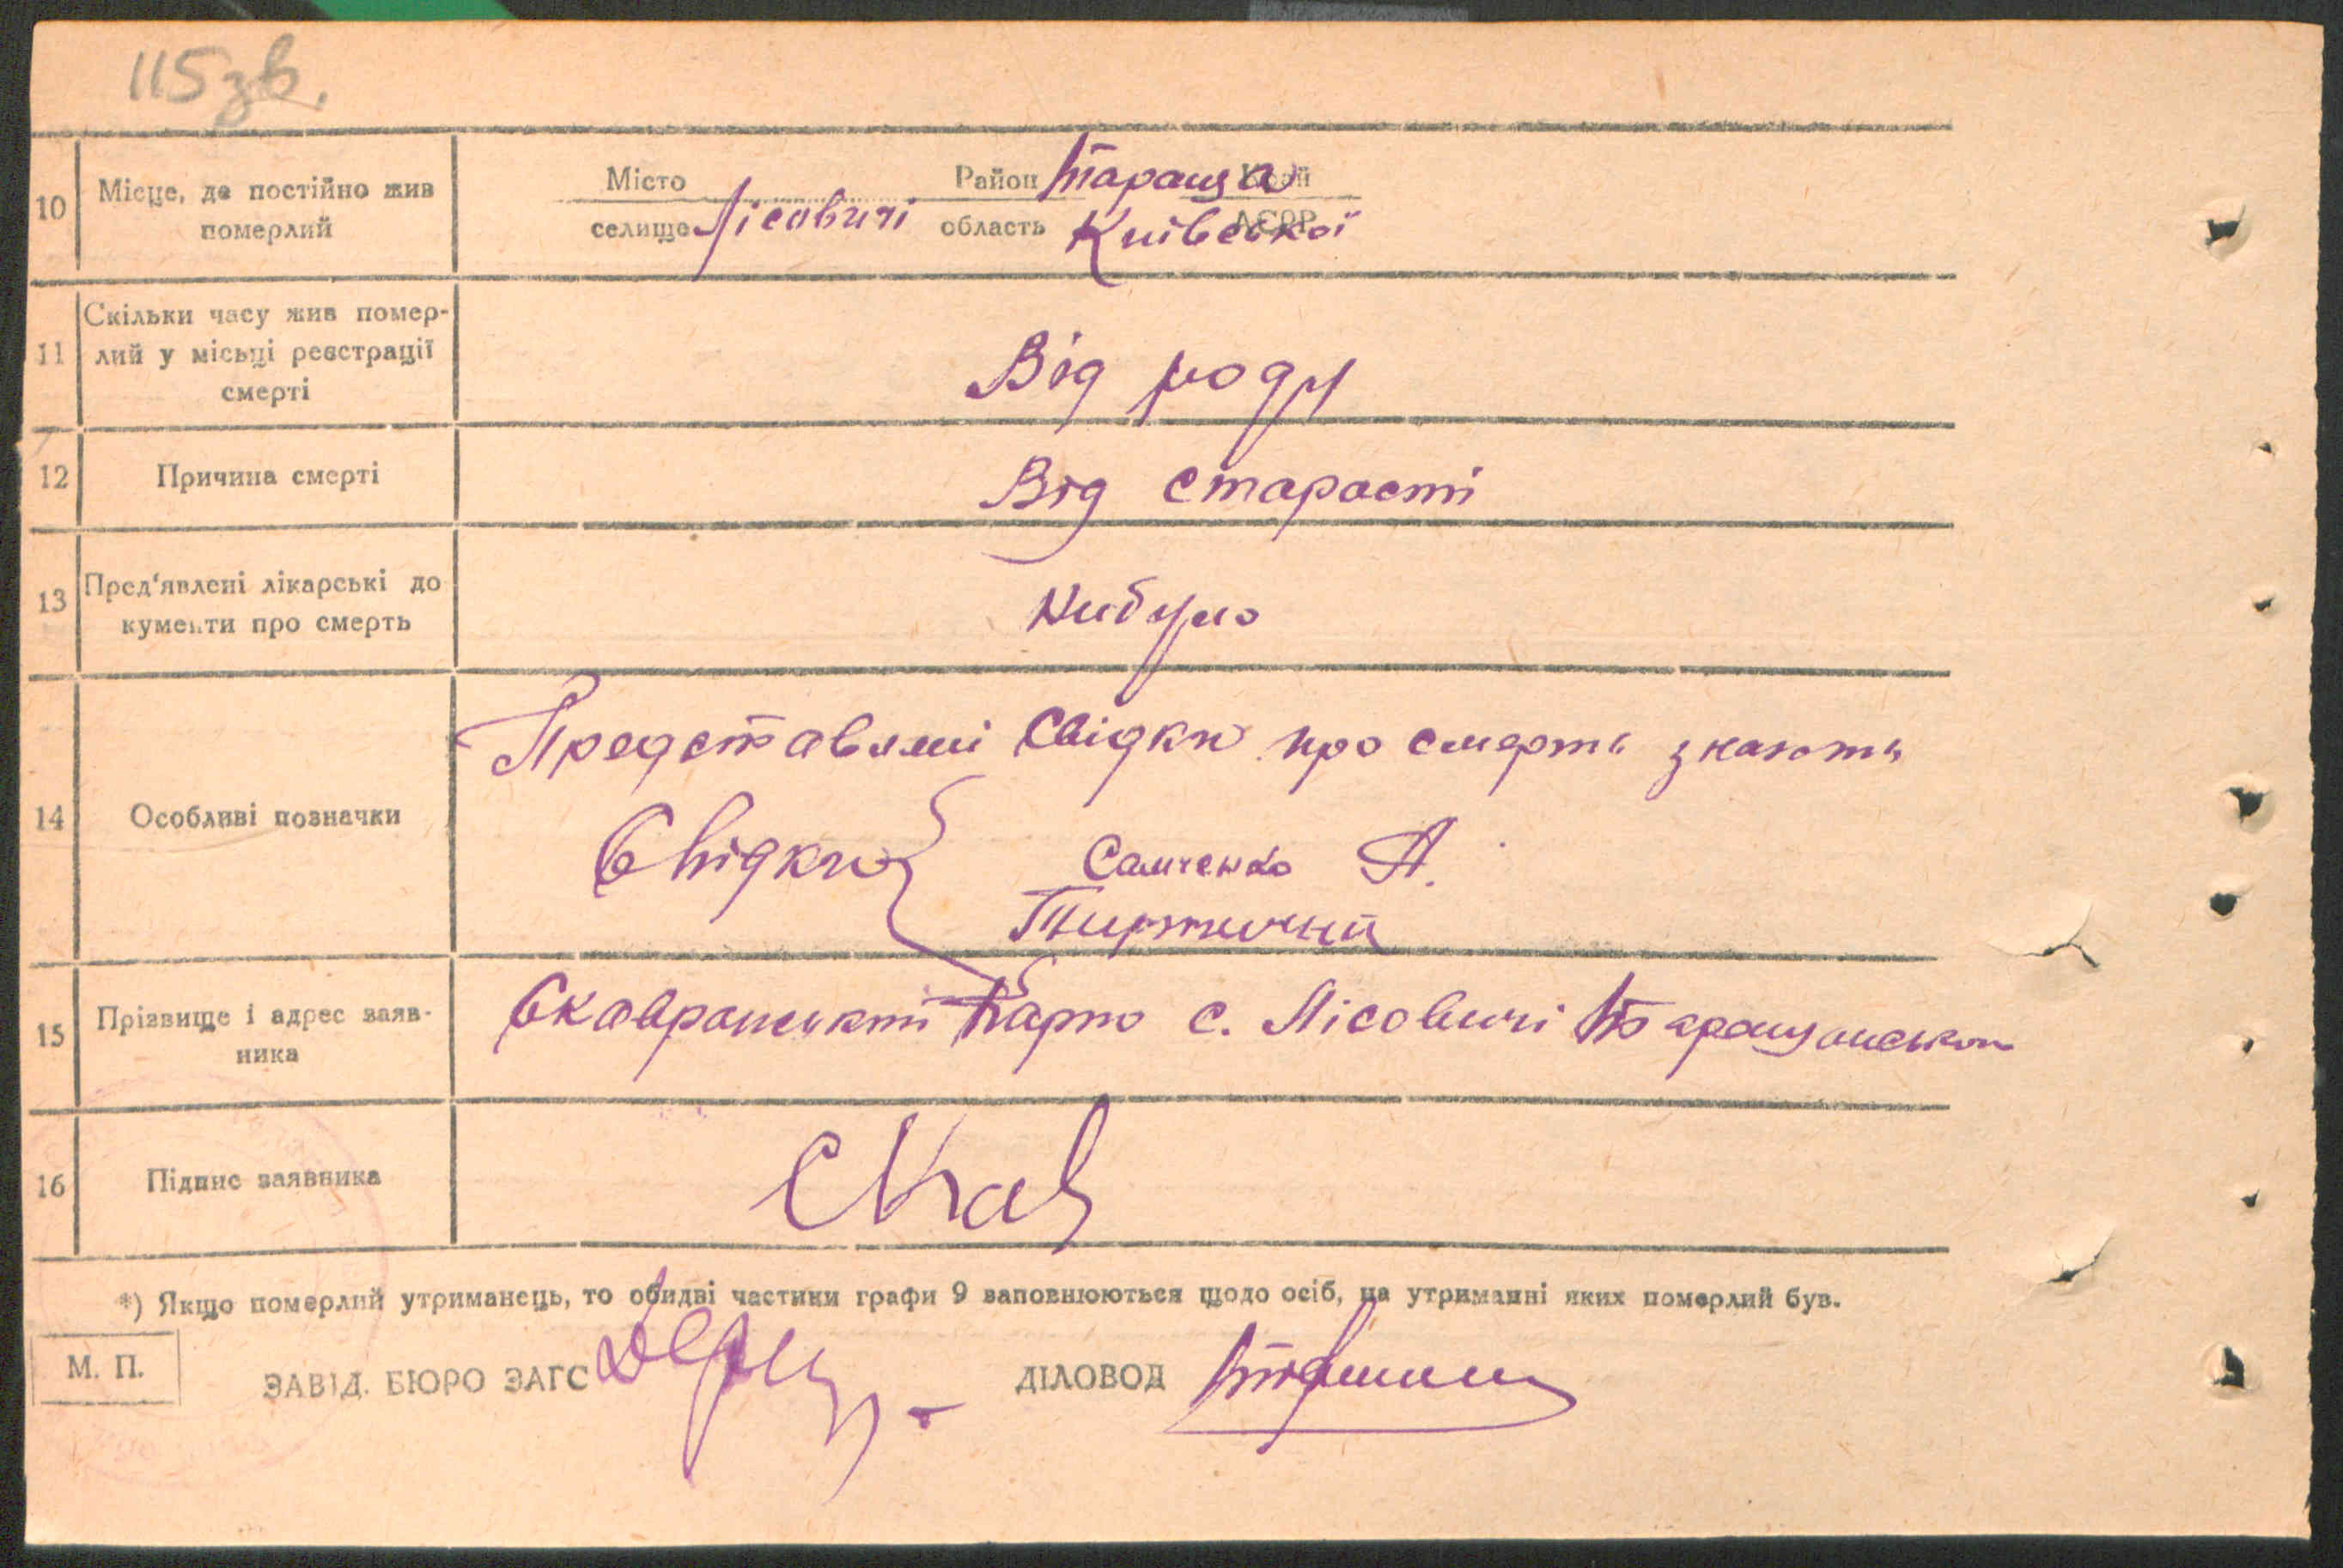 115 зв.
10 Місце, де постійно жив померлий
Місто Район Тараща Край
селище Лісовичі область Київської АСРР
11 Скільки часу жив помер-
лий у місьці реєстрації
смерті
Від роду
12 Причина смерті
Від старасті
13 Пред'явлені лікарські до
кументи про смерть
Нибуло
14 Особливі позначки
Представлині Свідки про смерть зкають
Свідки Самченко А.
Тиртичний
15 Прізвище і адрес заяв-
ника
с. Лісовичі
16 Підпис заявника
Скав
*) Якщо померлий утриманець, то обидві частини графи 9 заповнюються щодо осіб, на утриманні яких померлий був.
М. П.
ЗАВІД. БЮРО ЗАГС ДІЛОВОД